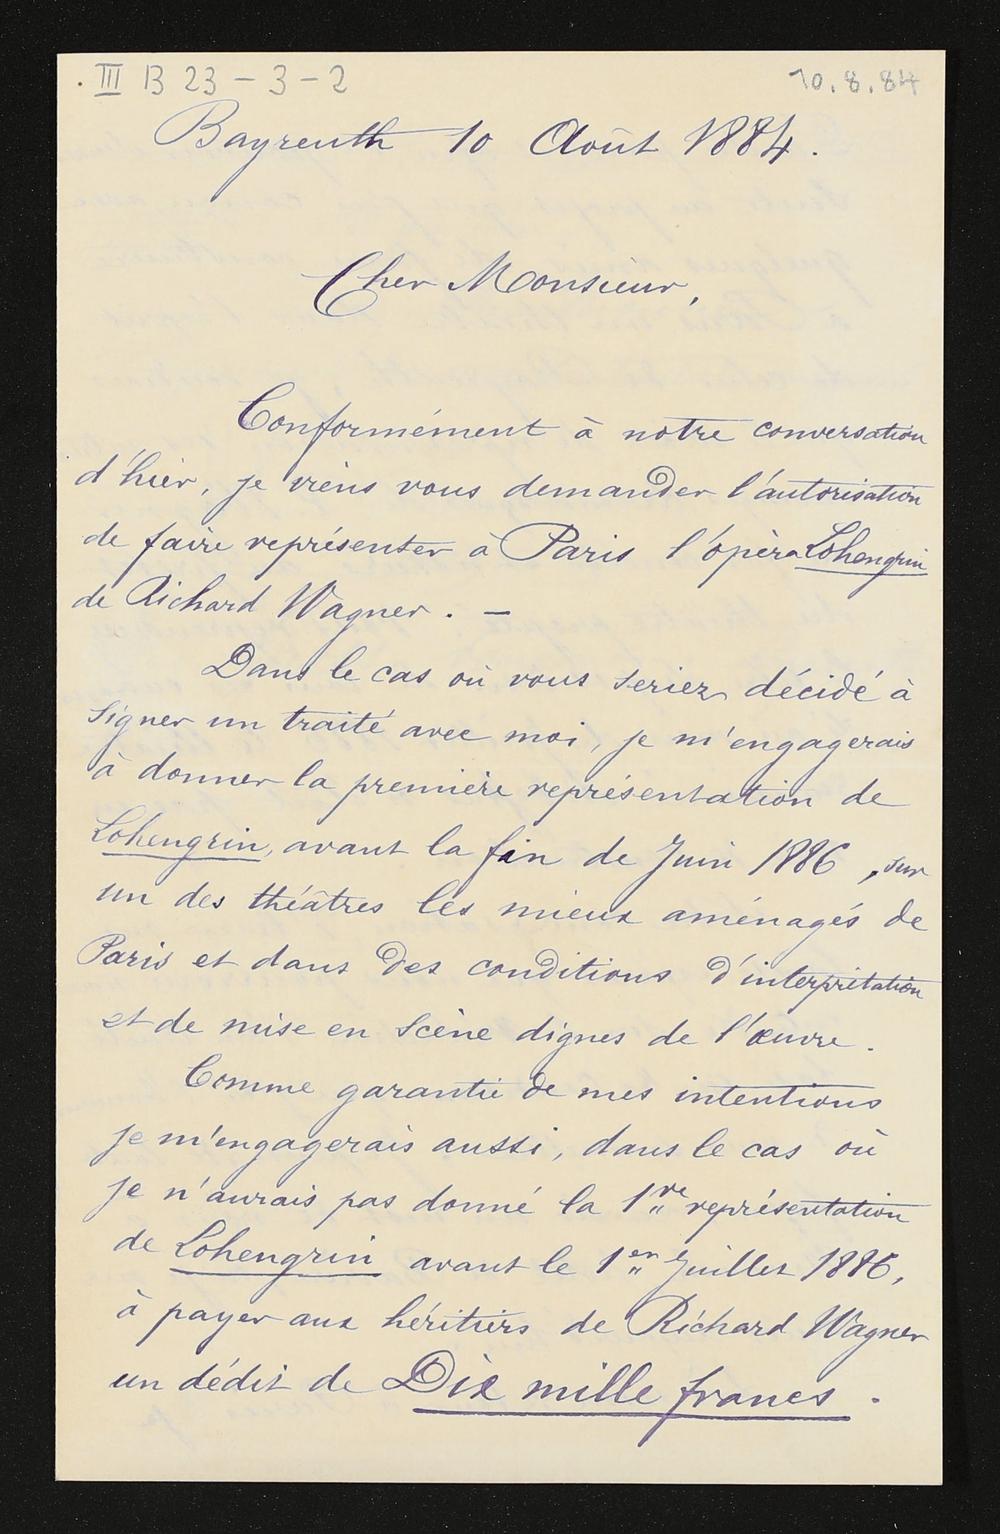 · III B 23 – 3 – 2
10.8.84
Bayreuth 10 Août 1884.
Cher Monsieur,
Conformément à notre conversation
d'hier, je viens vous demander l'autorisation
de faire représenter à Paris l'opéra Lohengrin
de Richard Wagner. –
Dans le cas où vous seriez décidé à
signer un traité avec moi, je m'engagerais
à donner la première représentation de
Lohengrin, avant la fin de Juin 1886, sur
un des théâtres les mieux aménagés de
Paris et dans des conditions d'interprétation
et de mise en scène dignes de l'œuvre.
Comme garantie de mes intentions
je m'engagerais aussi, dans le cas où
je n'aurais pas donné la 1re représentation
de Lohengrin avant le 1er Juillet 1886,
à payer aux héritiers de Richard Wagner
un dédit de Dix mille francs.